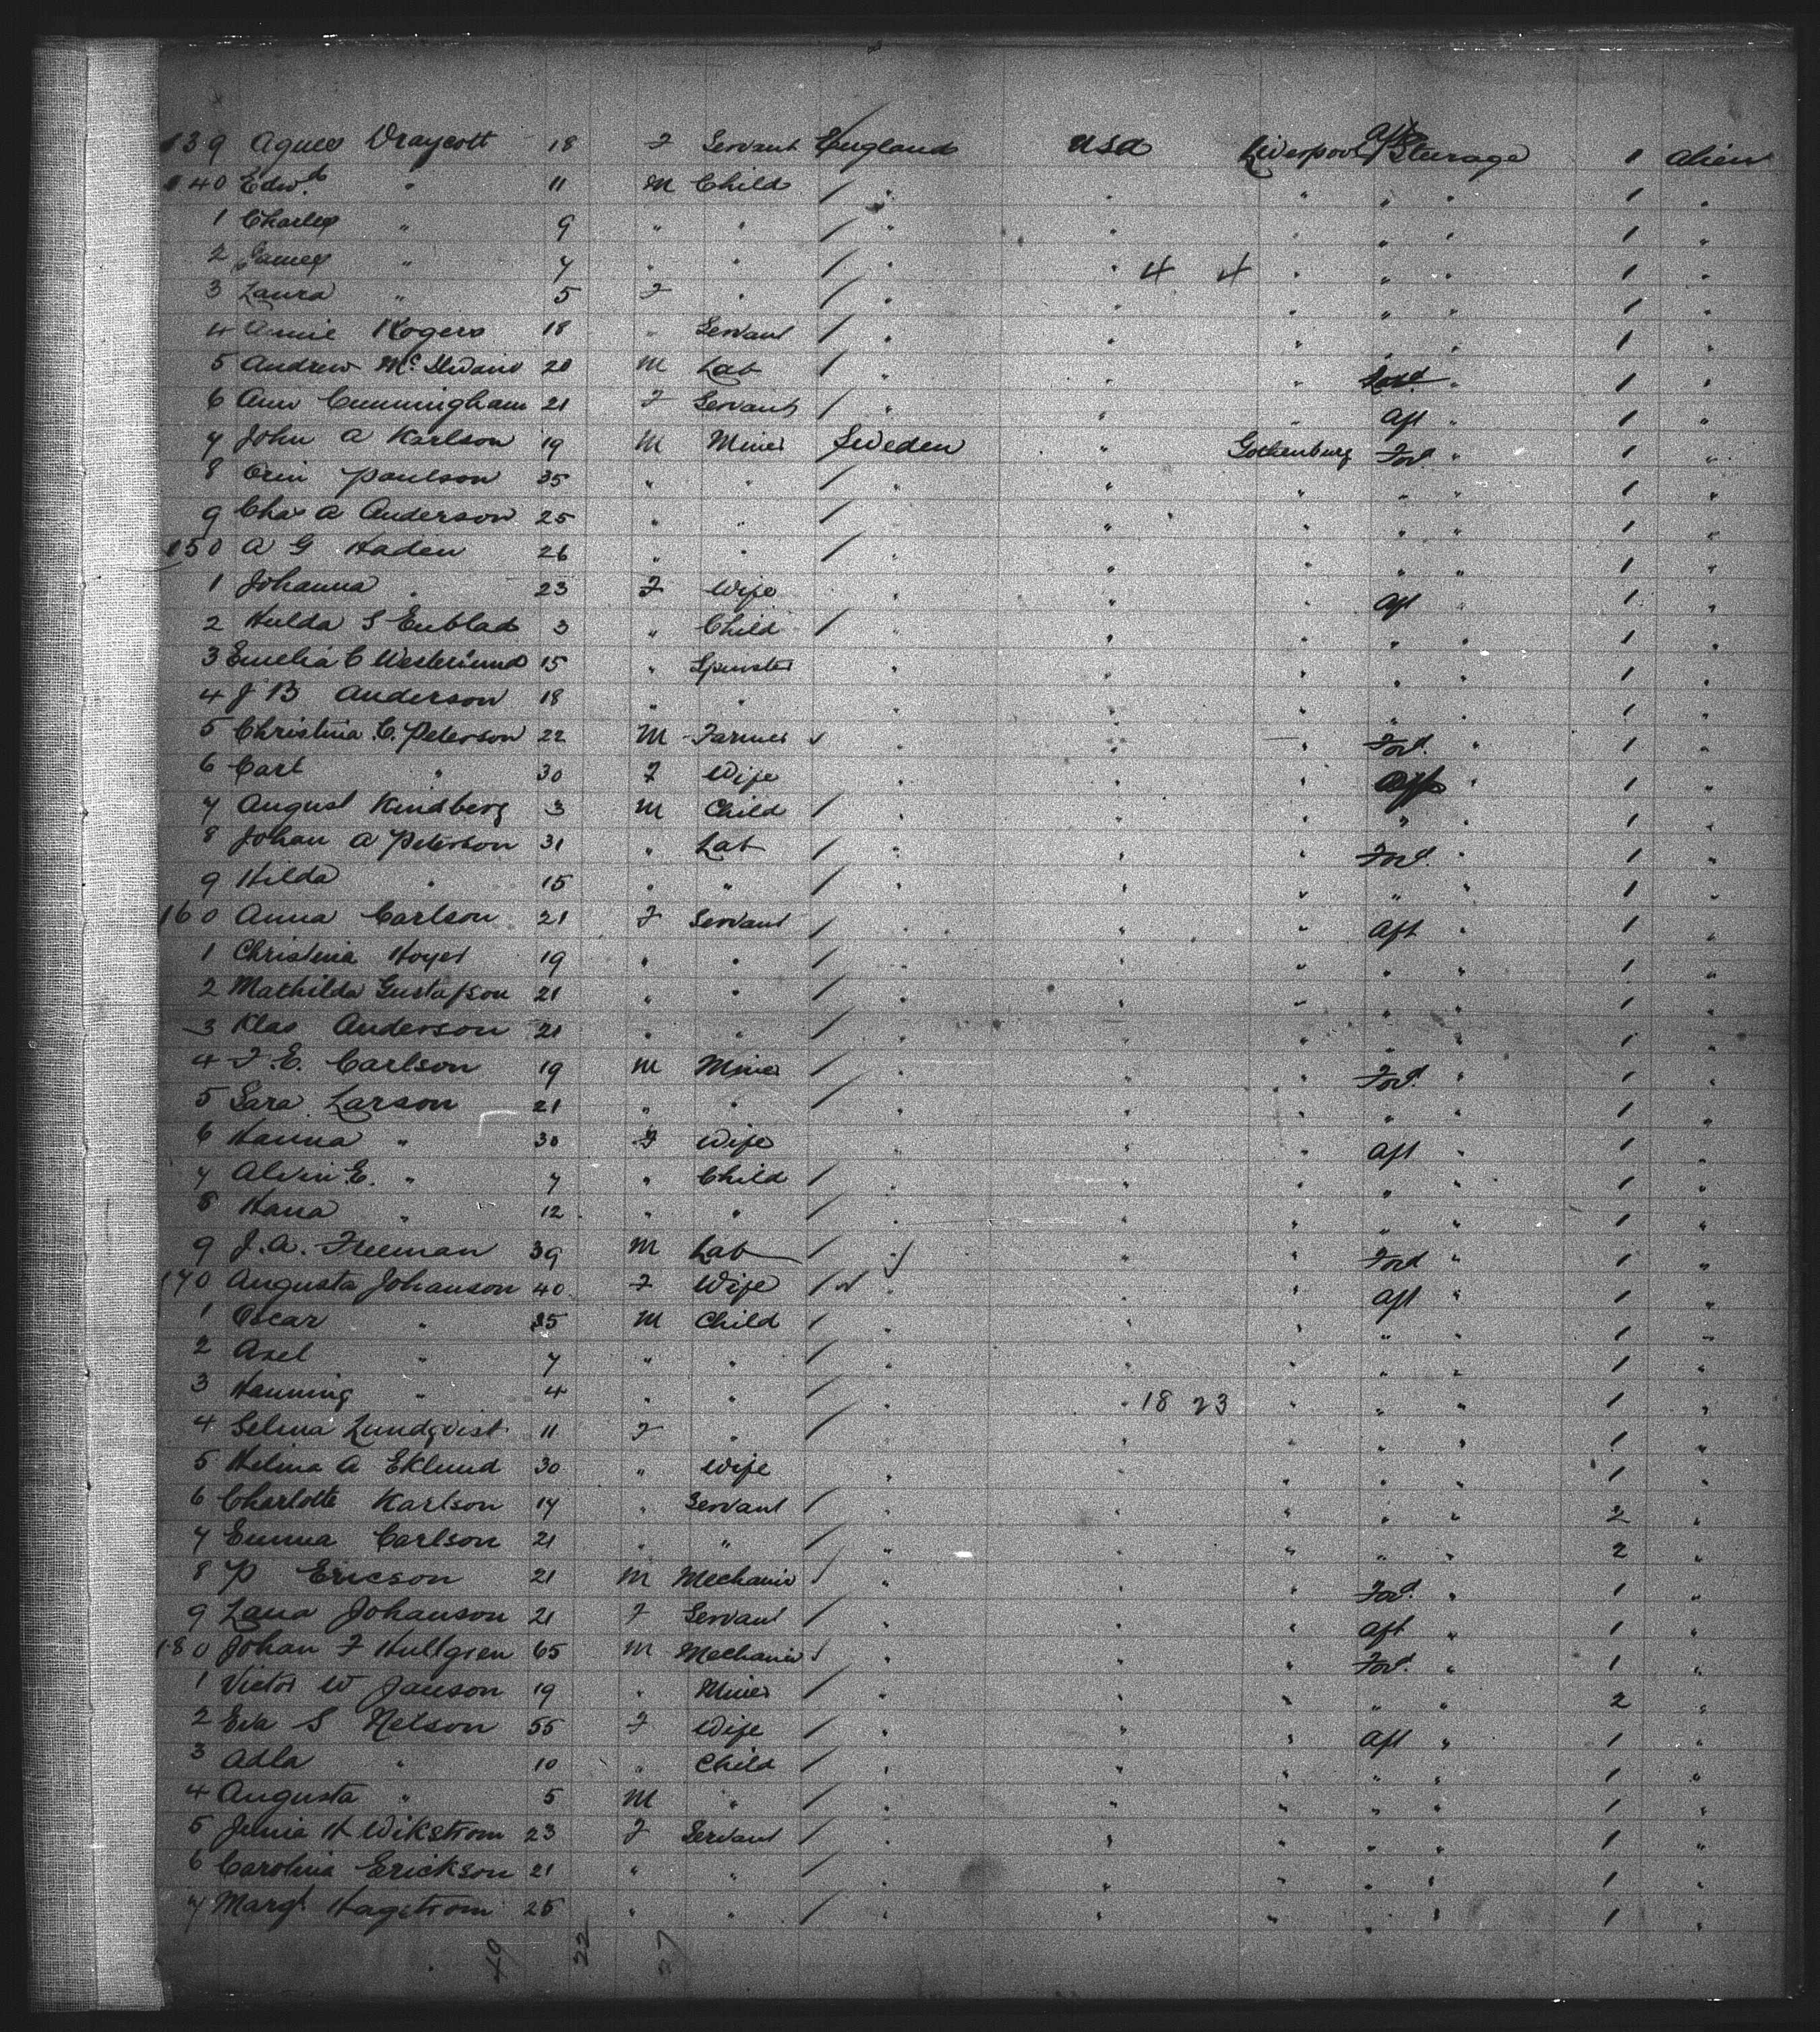 139 Agnes Draycott 18 F Servant England USA Liverpool Aft Sturage 1 Alien
140 Edwd " 11 M Child / " " " " " 1 "
1 Charles " 9 " " / " " " " " 1 "
2 James " 7 " " / " " 4 4 " " " 1 "
3 Laura " 5 F " / " " " " " 1 "
4 Annie Rogers 18 " Servant / " " " " " 1 "
5 Andrew Mc 20 M Lab / " " " " 1 "
6 Ann Cunningham 21 F Servant / " " " Aft " 1 "
7 John A Karlson 19 M Miner Sweden " Gothenburg Ford " 1 "
8 Orin Paulson 35 " " / " " " " " 1 "
9 Chas A Anderson 25 " " / " " " " " 1 "
150 A G Haden 26 " " / " " " " " 1 "
1 Johanna " 23 F Wife " " " Aft " 1 "
2 Hulda S Enblad 3 " Child / " " " " " 1 "
3 Emelia C Westerlund 15 " Spinster " " " " " 1 "
4 J B Anderson 18 " " " " " " " 1 "
5 Christina C. Peterson 22 M Farmer / " " " Ford " 1 "
6 Carl " 30 F Wife " " " Aft " 1 "
7 August Kindberg 3 M Child / " " " " " 1 "
8 Johan A Peterson 31 " Lab / " " " Ford " 1 "
9 Hilda " 15 " " / " " " " " 1 "
160 Anna Carlson 21 F Servant / " " " Aft " 1 "
1 Christina Hoyer 19 " " / " " " " " 1 "
2 Mathilda Gustafson 21 " " / " " " " " 1 "
3 Klas Anderson 21 " " / " " " " " 1 "
4 F. E. Carlson 19 M Miner / " " " Ford " 1 "
5 Sara Larson 21 " " / " " " " " 1 "
6 Hanna " 30 F Wife " " " Aft " 1 "
7 Alvin E. " 7 " Child / " " " " " 1 "
8 Hana " 12 " " / " " " " " 1 "
9 J. A. Freeman 39 M Lab / " " " Ford " 1 "
170 Augusta Johanson 40 F Wife / " " " Aft " 1 "
1 Oscar " M Child / " " " " " 1 "
2 Axel " 7 " " / " " " " " 1 "
3 Hanning " 4 " " / " " 18 23 " " " 1 "
4 Selma Lundqvist 11 F " / " " " " " 1 "
5 Helina A Eklund 30 " Wife " " " " " 1 "
6 Charlotte Karlson 17 " Servant / " " " " " 2 "
7 Emma Carlson 21 " " / " " " " " 2 "
8 P Ericson 21 M Mechanic / " " " Ford " 1 "
9 Lana Johanson 21 F Servant / " " " Aft " 1 "
180 Johan F Hullgren 65 M Mechanic / " " " Ford " 1 "
1 Victor W Janson 19 " Miner / " " " " " 2 "
2 Eva S Nelson 55 F Wife / " " " Aft " 1 "
3 Adla " 10 " Child / " " " " " 1 "
4 Augusta " 5 M " / " " " " " 1 "
5 Jenia H Wikstrom 23 F Servant / " " " " " 1 "
6 Carolina Erickson 21 " " / " " " " " 1 "
7 Margt Hagstrom 25 " " / " " " " " 1 "
49 22 27